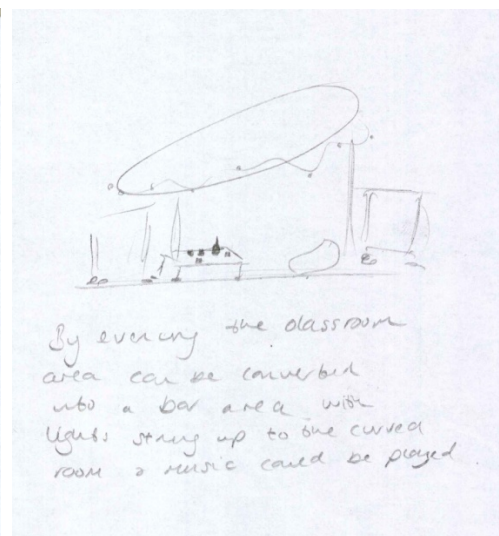 By evening the classroom
area can be converted
into a bar area with
lights strung up to the curved
room & music could be played